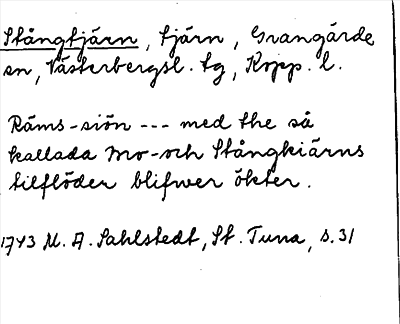 Stångtjärn, tjärn, Grangärde
sn, Västerbergsl. tg, Kopp. l.
Räms-siön --- med the så
kallada Mo- och Stångkiärns
tilflöder blifwer ökter.
1743 M. A. Sahlstedt, St. Tuna, s. 31